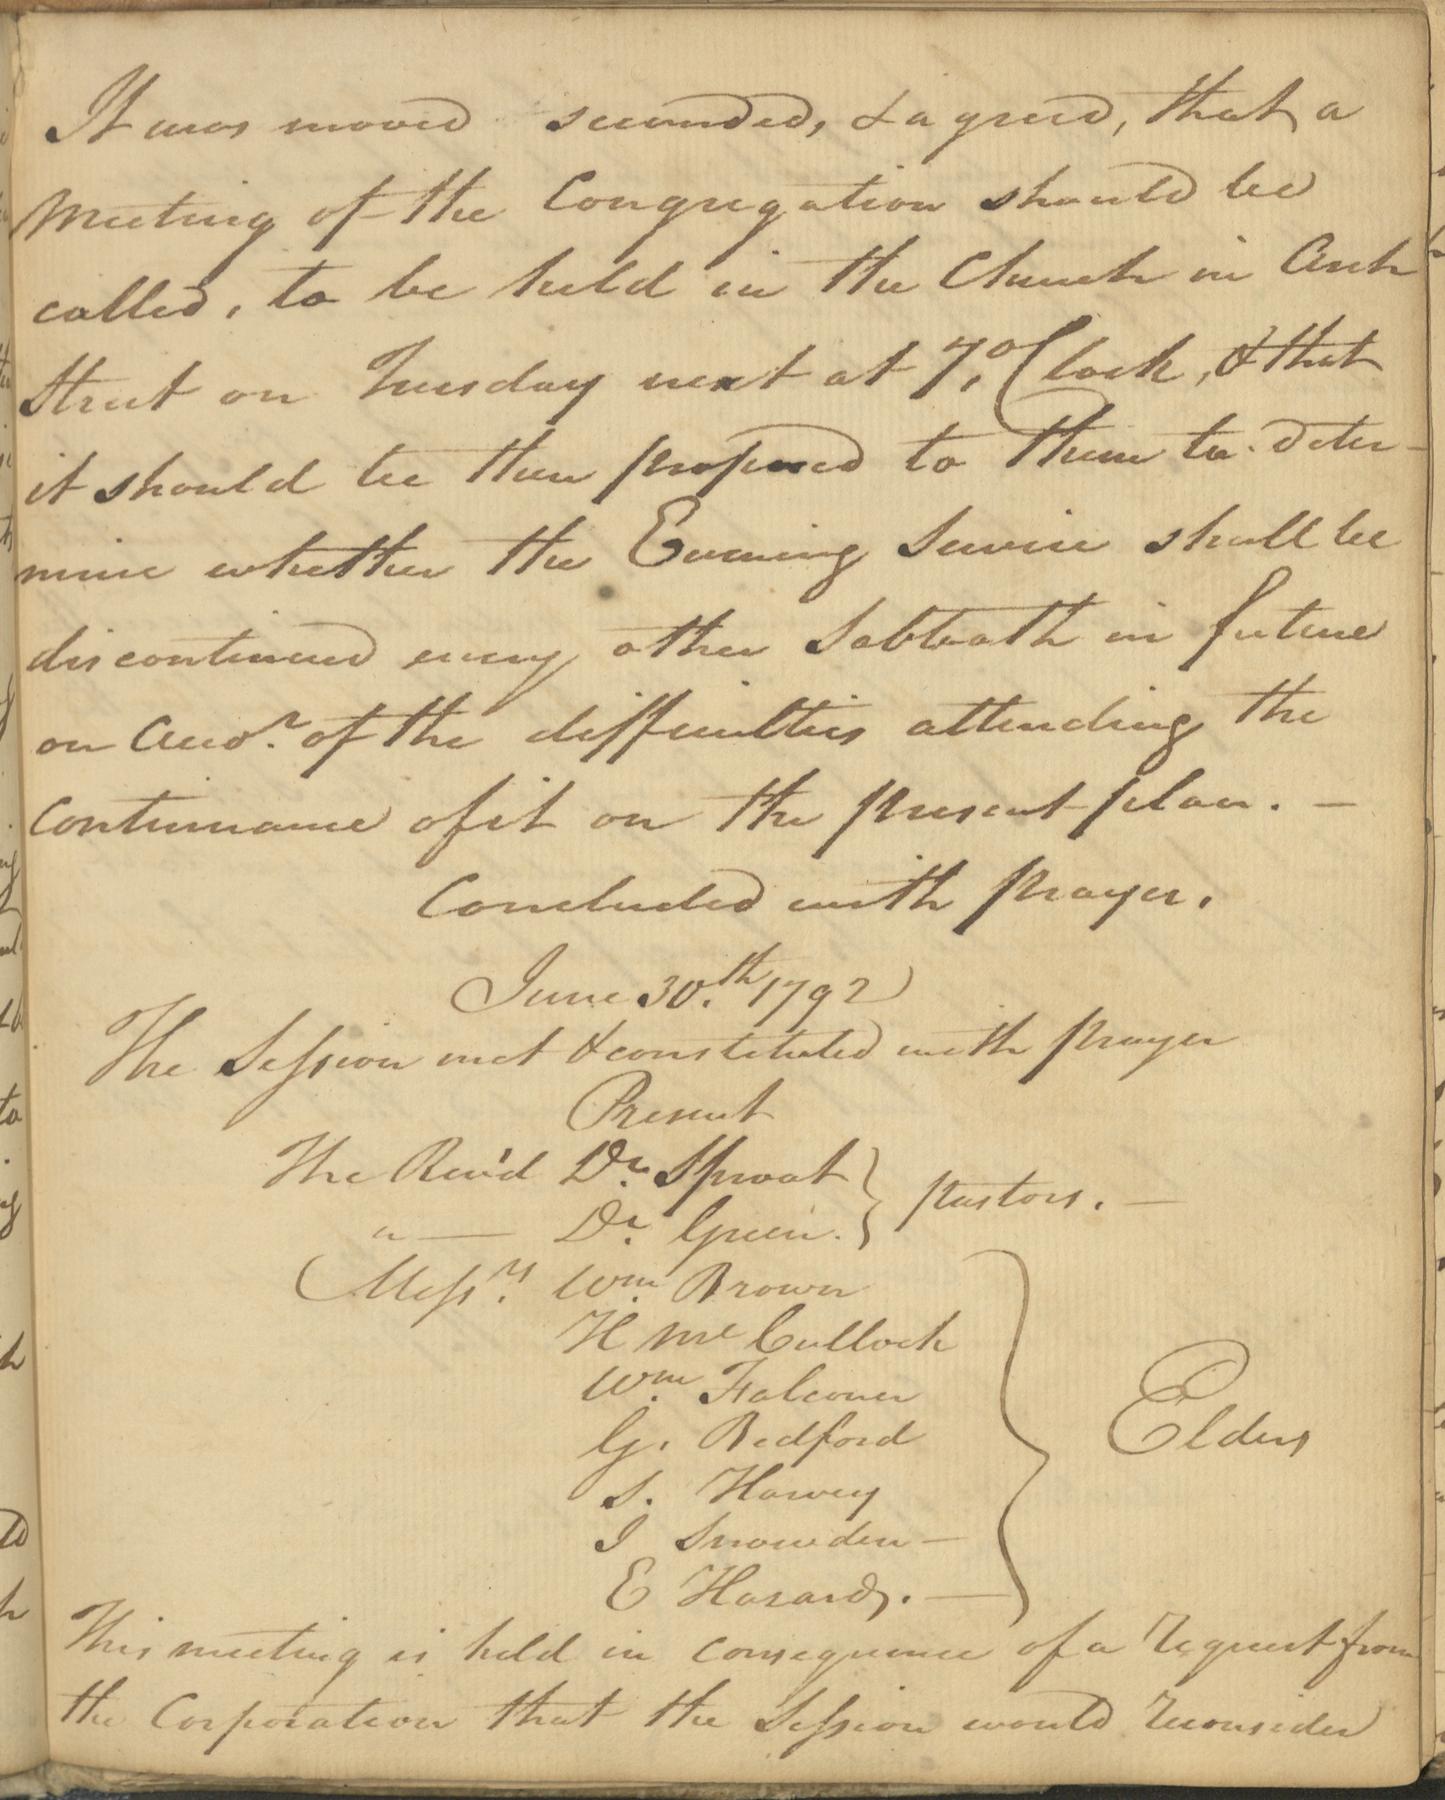 It was moved seconded, & agreed, that a
Meeting of the Congregation should be
called, to be held in the Church in Arch
Street on Tuesday next at 7, oClock, & that
it should be then proposed to them to deter-
mine whether the Evening Service shall be
discontinued every other Sabbath in future
on Acco.t of the difficulties attending the
Continuance of it on the present plan. —
Concluded with prayer.
June 30.th 1792
The Session met & constituted with prayer
Present
The Rev'd Dr. Sproat
" — Dr. Green.
} pastors. —
Mess.rs Wm. Brown
H Mc Cullock
Wm. Falconer
G. Bedford
S. Harvey
I Snowden —
E Hazard. —
} Elders
This meeting is held in consequence of a request from
the Corporation that the Session would reconsider